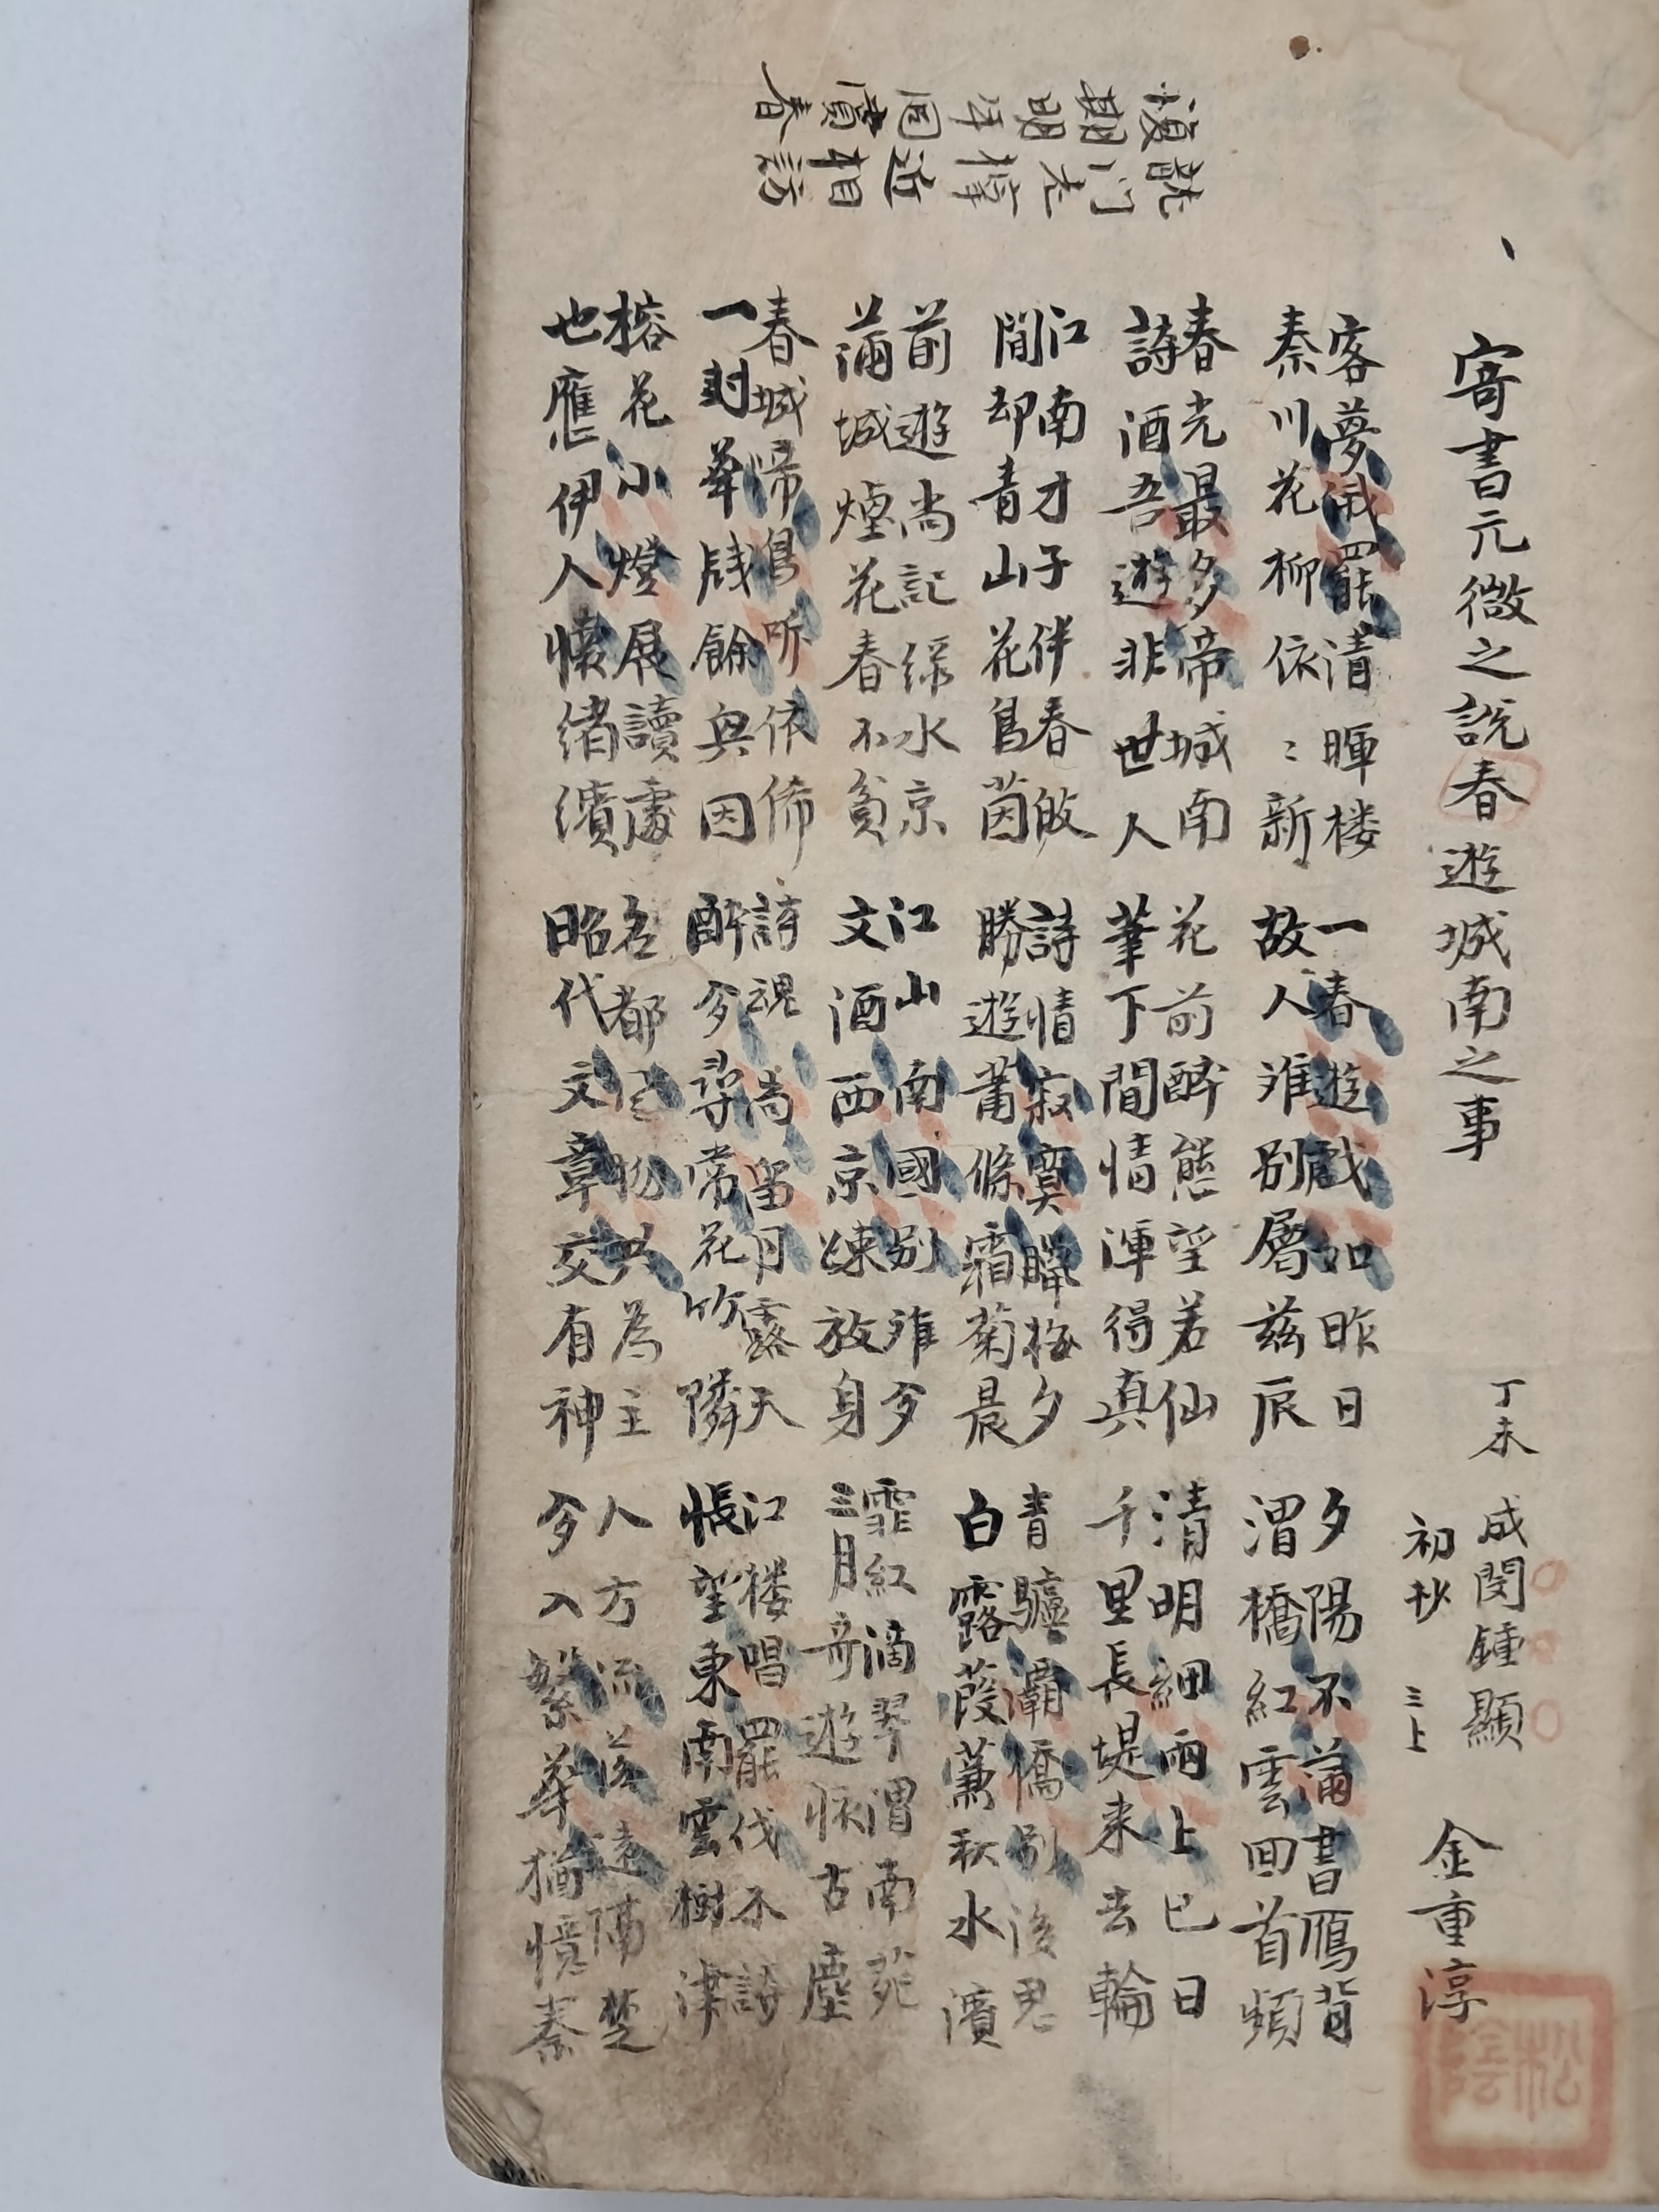 期明年同賞春
寄書元微之說春遊城南之事
丁未 成閔鍾顯
初抄 三上
金重淳
客夢罷清暉楼
秦川花柳依〻新
一春遊戯如昨日
故人难別屬玆辰
夕陽不滿書鴈背
渭橋紅雲回首頻
春光最多帝城南
詩酒吾遊非世人
花前醉態望若仙
筆下閒情渾得真
清明細雨上巳日
千里長堤来去輪
江南才子伴春啟
閒却青山花鳥茵
詩情寂寞時梅夕
勝遊蕭條霜菊晨
青驢灞橋別後思
白露葭蒹秋水濱
前遊尚記綠水京
滿城煙花春不貧
江山南國別难今
文酒西京疎放身
霏紅滴翠渭南苑
三月奇遊怀古塵
春城啼鳥听依俙
一封華牋餘興因
詩魂尚留月露天
醉今尋常花竹隣
江楼唱罷伐木詩
悵望東南雲樹津
榕花小燈展讀處
也應伊人懷緖濱
名都風物共為主
昭代文章交有神
人方流落遠隔楚
今入繁華猶憶秦
松陰